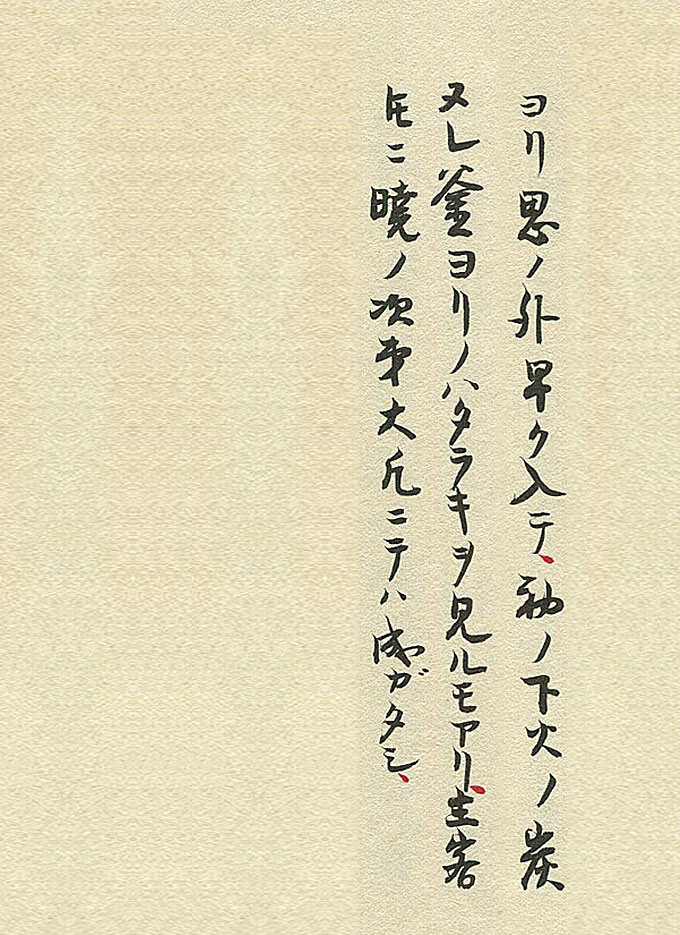 ヨリ思ノ外早ク入テ、初ノ下火ノ炭
ヌレ釜ヨリノハタラキヲ見ルモアリ、主客
𪜈ニ暁ノ次第大凡ニテハ成ガタシ、